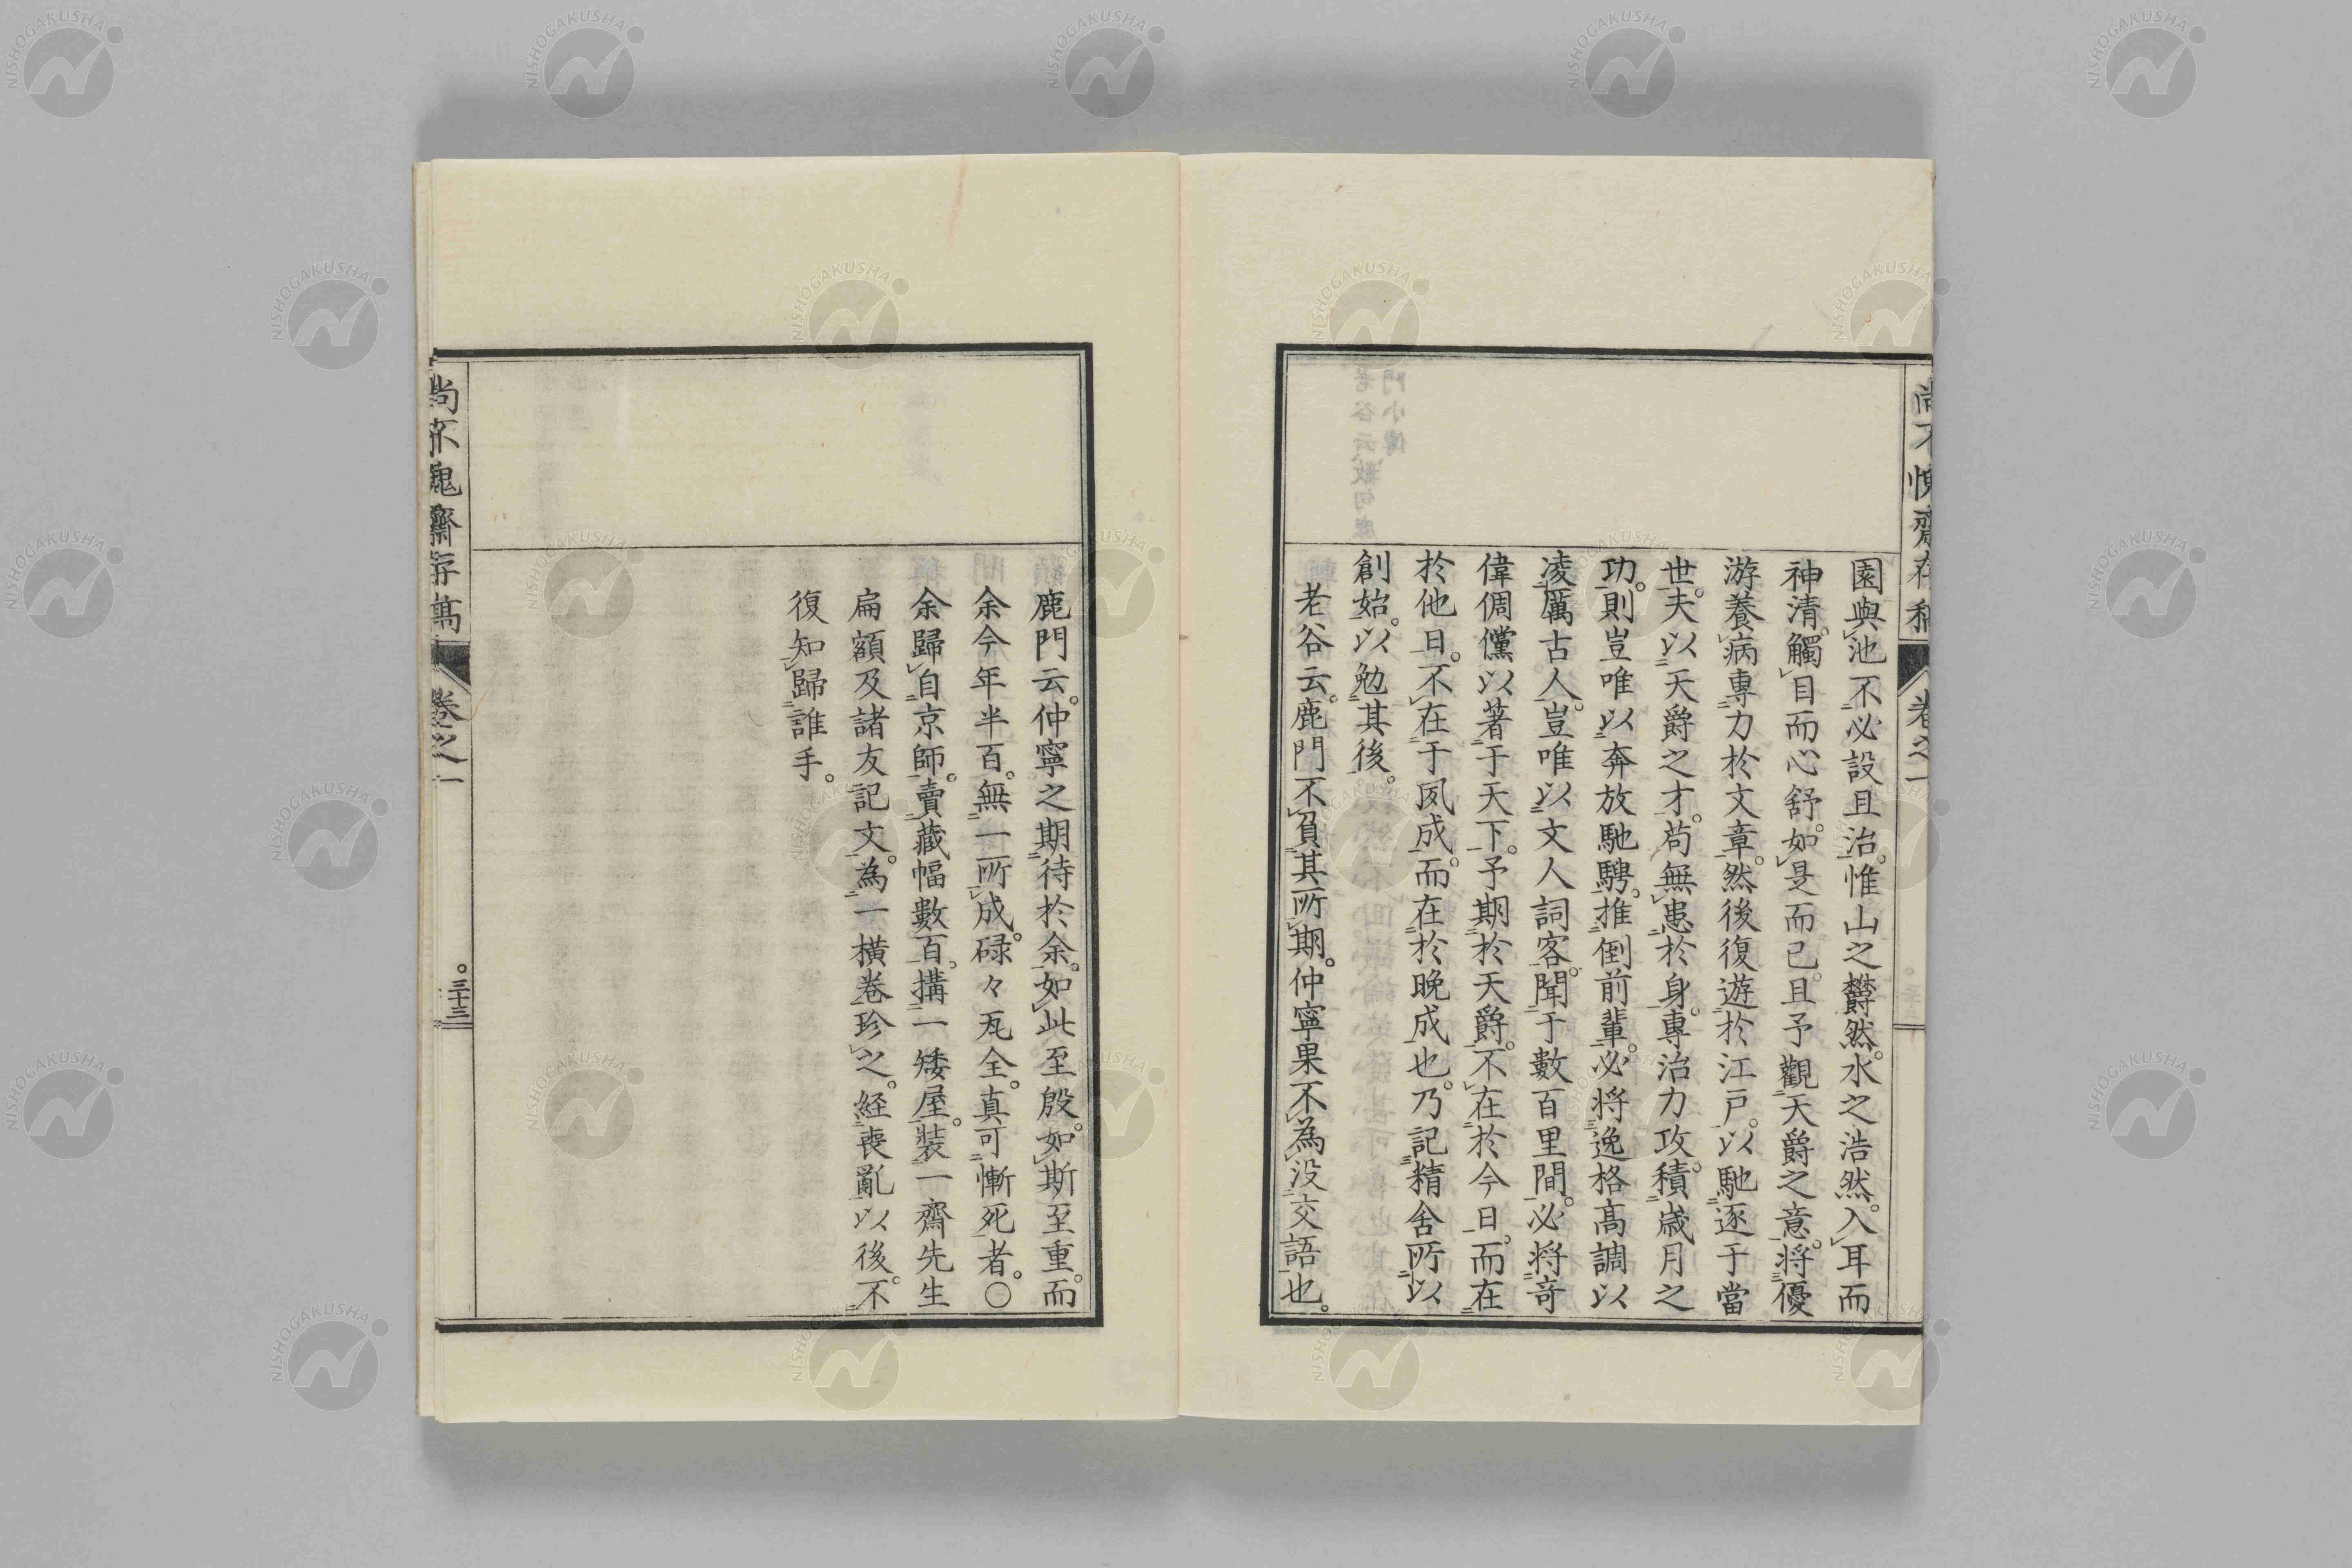 園與池不必設且治。惟山之欝然。水之浩然。入耳而
神清。觸目而心舒。如是而已。且予觀天爵之意。將優
游養病專力於文章。然後復遊於江戸。以馳逐于當
世。夫以天爵之才。苟無患於身。專治力攻。積歳月之
功。則豈唯以奔放馳騁。推倒前輩。必將逸格高調以
凌厲古人。豈唯以文人詞客。聞于數百里間。必將奇
偉倜儻以著于天下。予期於天爵。不在於今日。而在
於他日。不在于夙成。而在於晩成也。乃記精舍所以
創始。以勉其後。
老谷云。鹿門不負其所期。仲寧果不為没交語也。
鹿門云。仲寧之期待於余。如此至殷。如斯至重。而
余今年半百。無一所成。碌々瓦全。真可慚死者。○
余歸自京師。賣藏幅數百。搆一矮屋。裝一齋先生
扁額及諸友記文。為一横巻珍之。経喪亂以後。不
復知歸誰手。
尚不愧齋存稿
卷之一
三十三
NISHOGAKUSHA